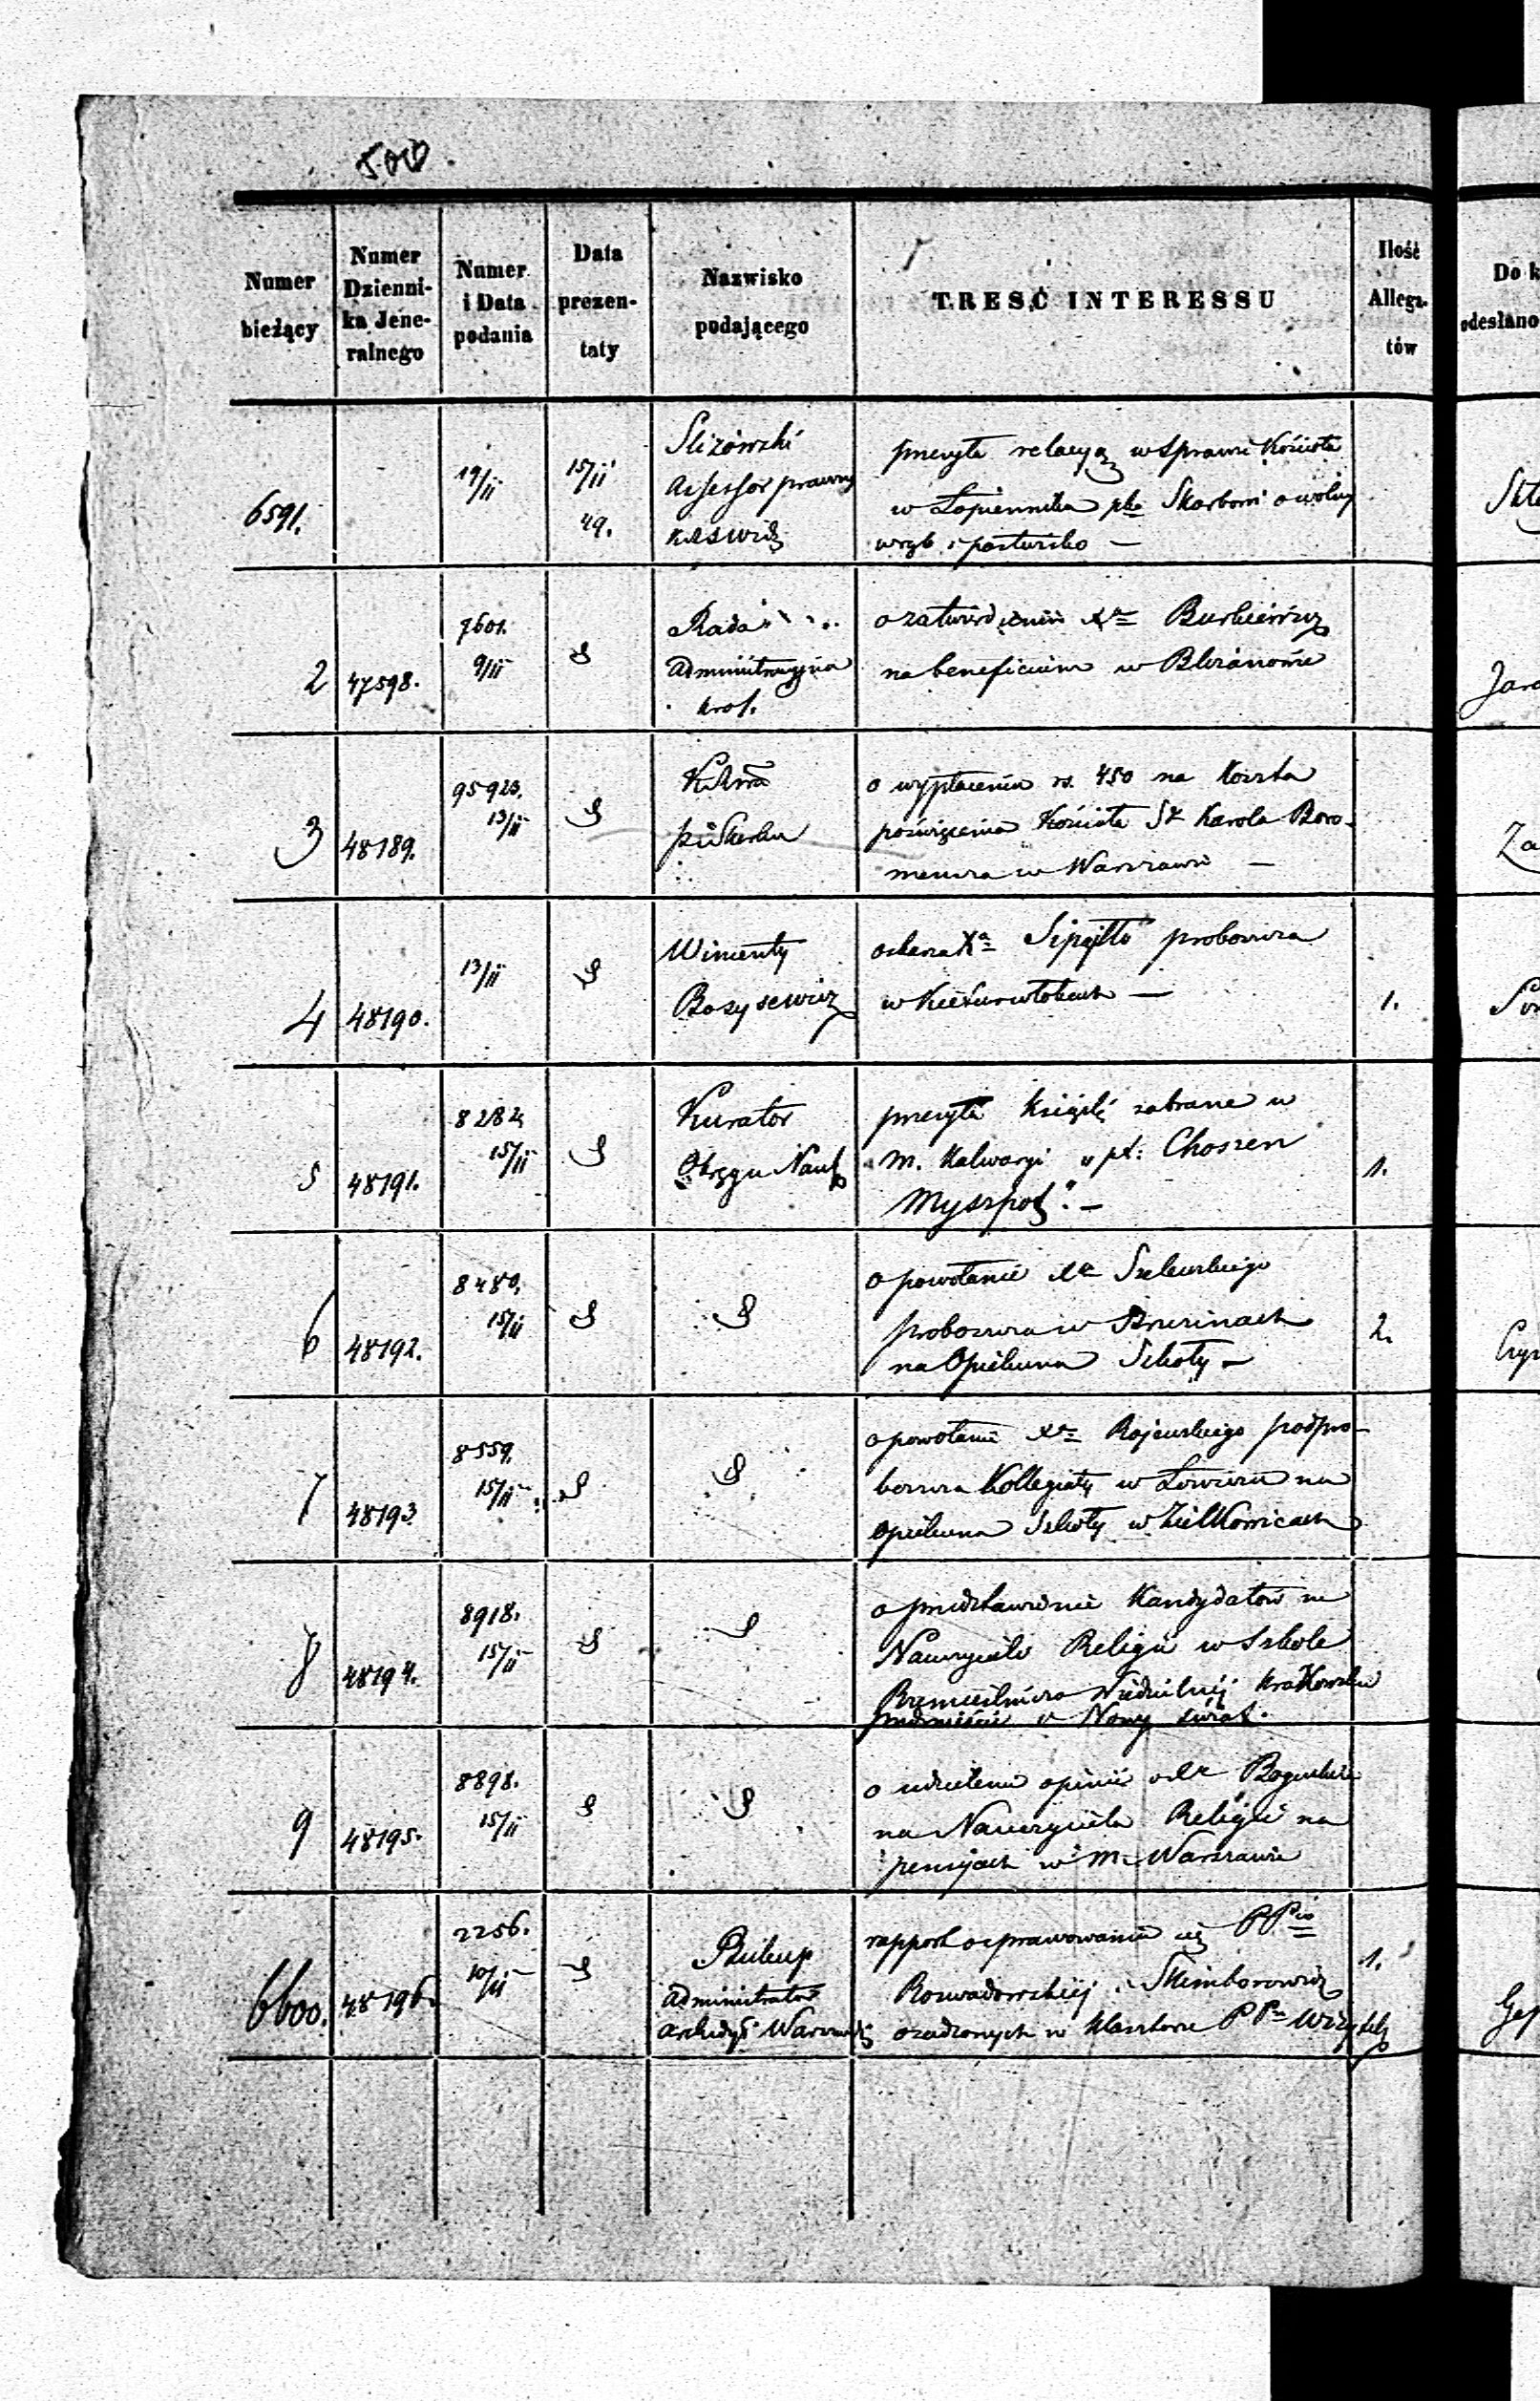 500
Numer bieżący
Numer Dzienni-ka Jene-ralnego
Numer i Data podania
Data prezen-taty
Nazwisko podającego
TRESĆ INTERESSU
Ilość Allega-tów
Do k
odesłano
6591.
19/II
15/II
49.
Slizowski
Assessor prawny
przesyła relacyą w sprawie Kościoła
w Łopienniku pko Skarbowi o wolny
wrąb i pastwisko —
2
47598.
7601.
9/II
Rada
Administracyjna
Król.
o zatwierdzenie Xa Burkiewicz
na beneficium w
3
48189.
95923.
13/II
o wypłacenie rs. 450 na koszta
poświęcenia Kościoła Sgo Karola Boro-
meusza w Warszawie —
Za
4
48190.
13/II
Wincenty
Bozysewicz
oskarża Xa Sipayłło proboszcza
w
1.
5
48191.
8282
15/II
Kurator
Okręgu Nauk
przesyła książkę zabraną w
m. Kalwaryi p.t: Choszen
Myszpot". —
1.
6
48192.
8480.
15/II
o powołanie Xa
proboszcza w
na Opiekuna Szkoły —
2.
7
48193
8559.
15/II
o powołanie Xa Rojewskiego podpro-
boszcza Kollegiaty w Łowiczu na
Opiekuna Szkoły w Zielkowicach
8
48194.
8918.
15/II
o przedstawienie Kandydatów na
Nauczyciela Religii w Szkole
Rzemieślniczo Niedzielnéj Krakowskie
przedmieście i Nowy świat.
9
48195.
8898.
15/II
o udzielenie opinii o Xe
na Nauczyciela Religii na
pensyach w m. Warszawie
6600.
48196.
2256.
10/II
Biskup
Administrator
Archidye. Warszawskiej
rapport o sprawowaniu się PP
Rozwadowskiéj i Skimborowicz
osadzonych w Klasztorze PPn Wizytek
1.